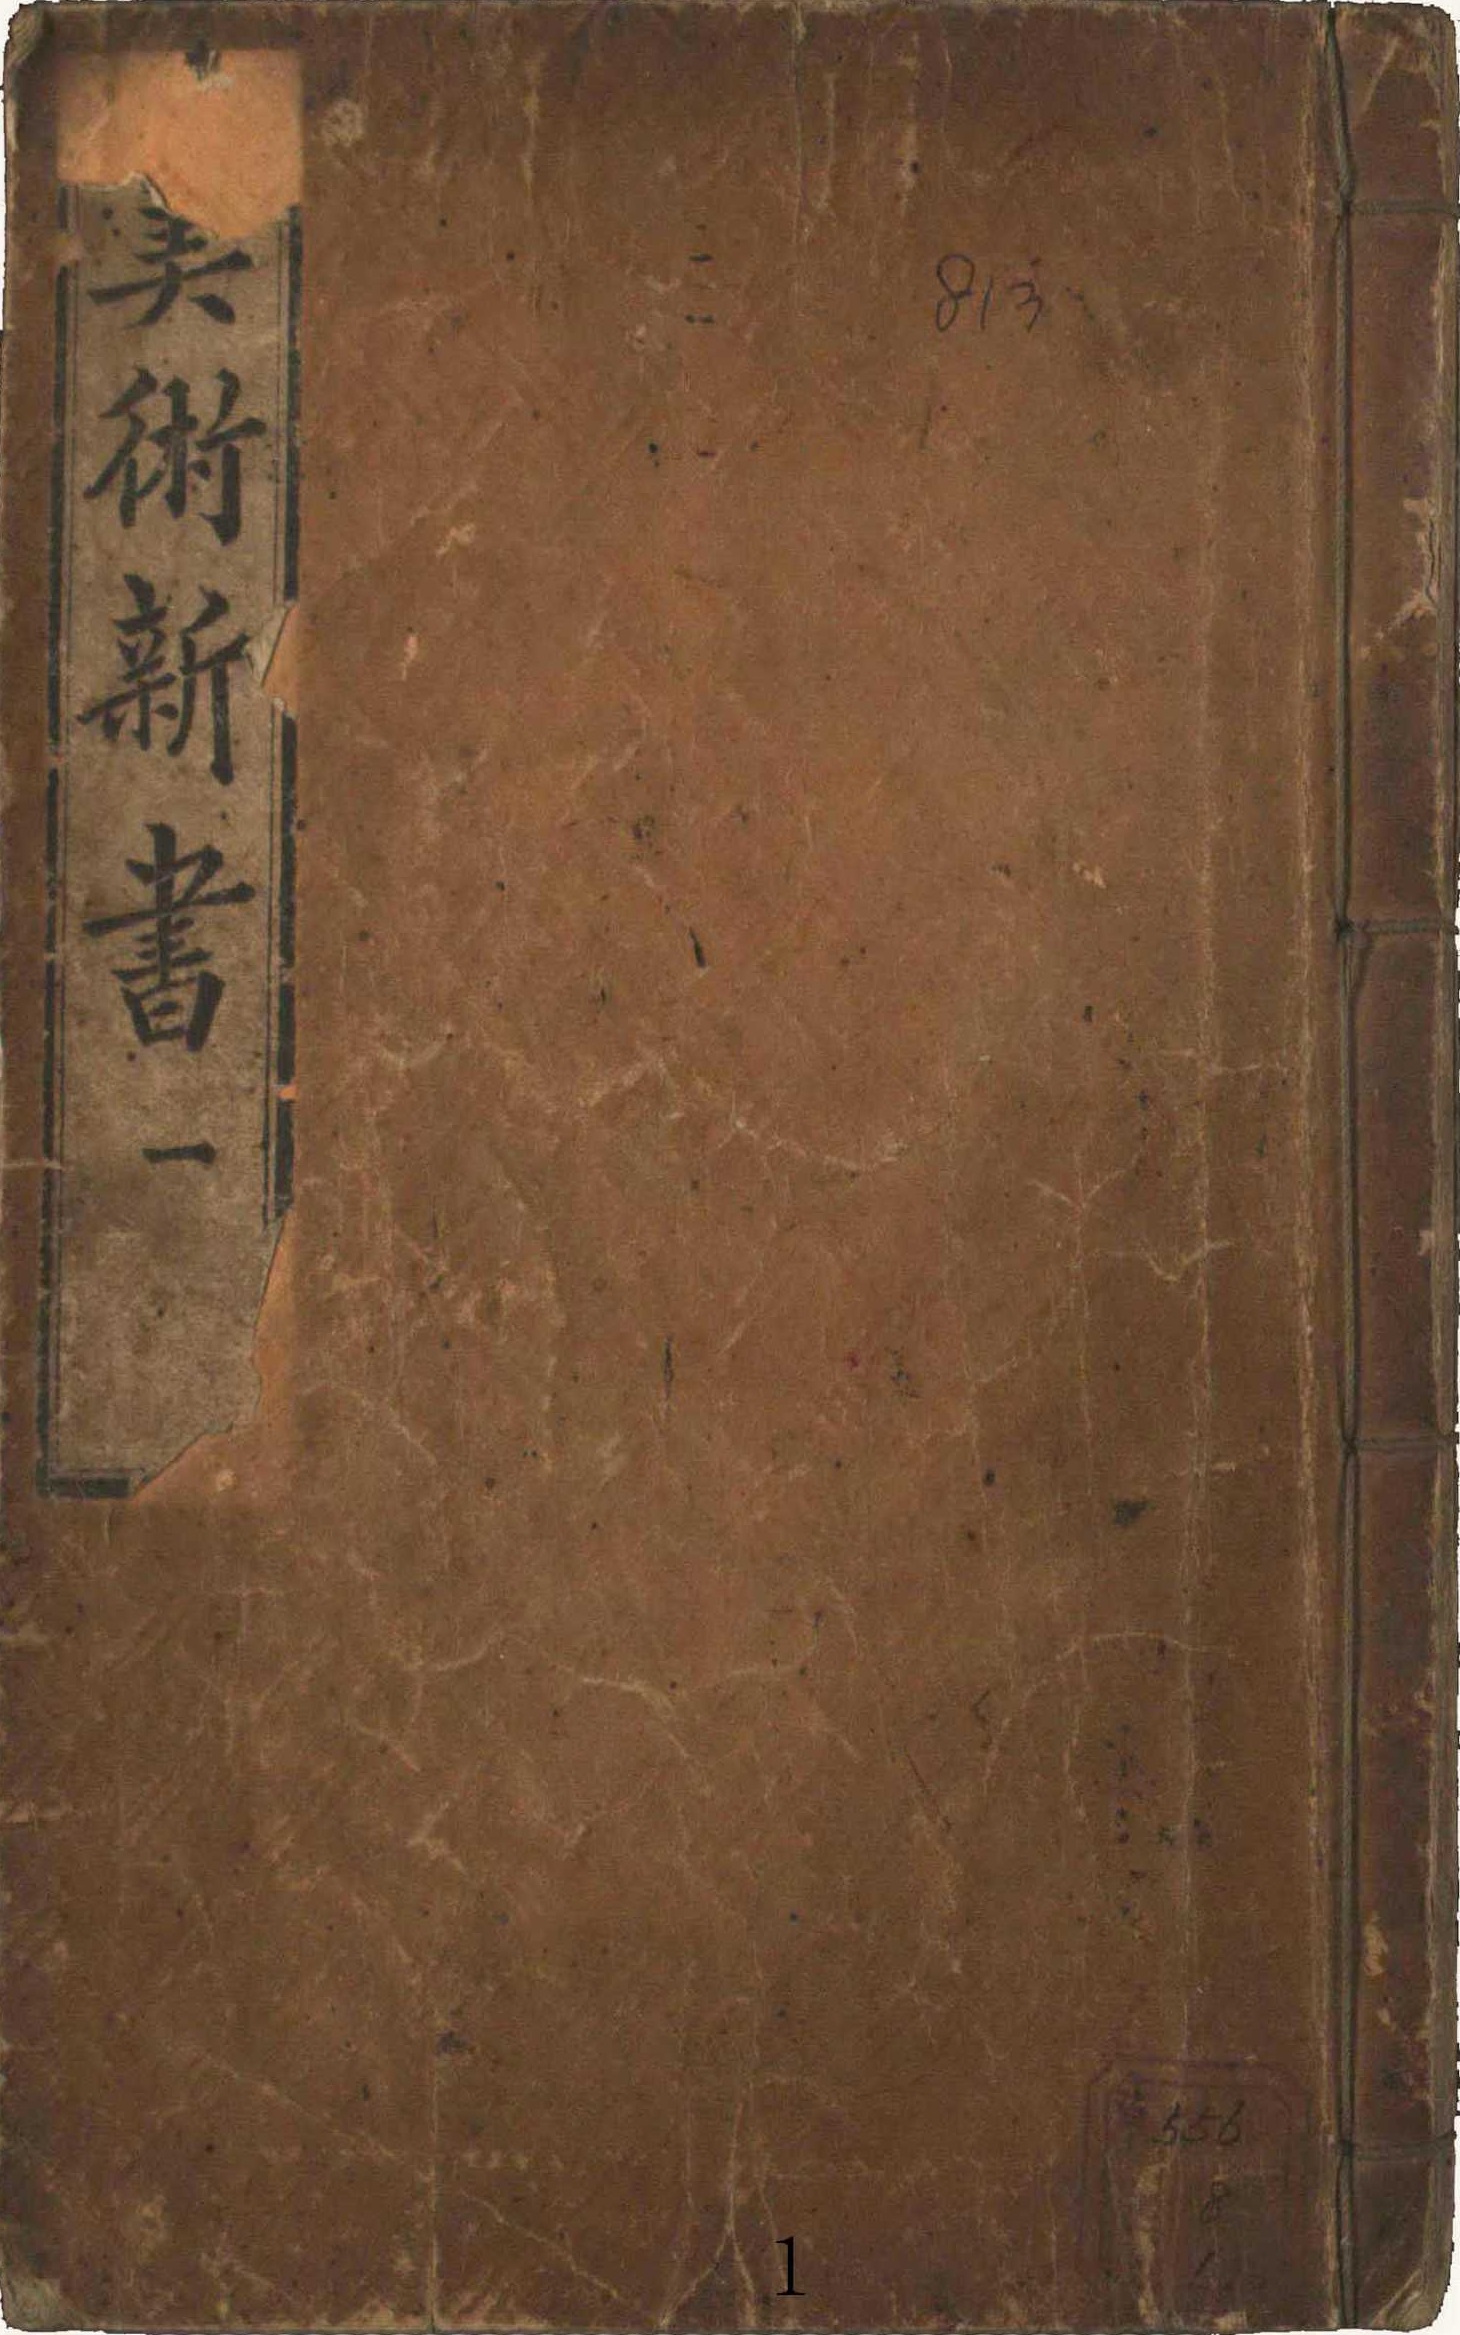 術新書 一
813
556
8
1
1